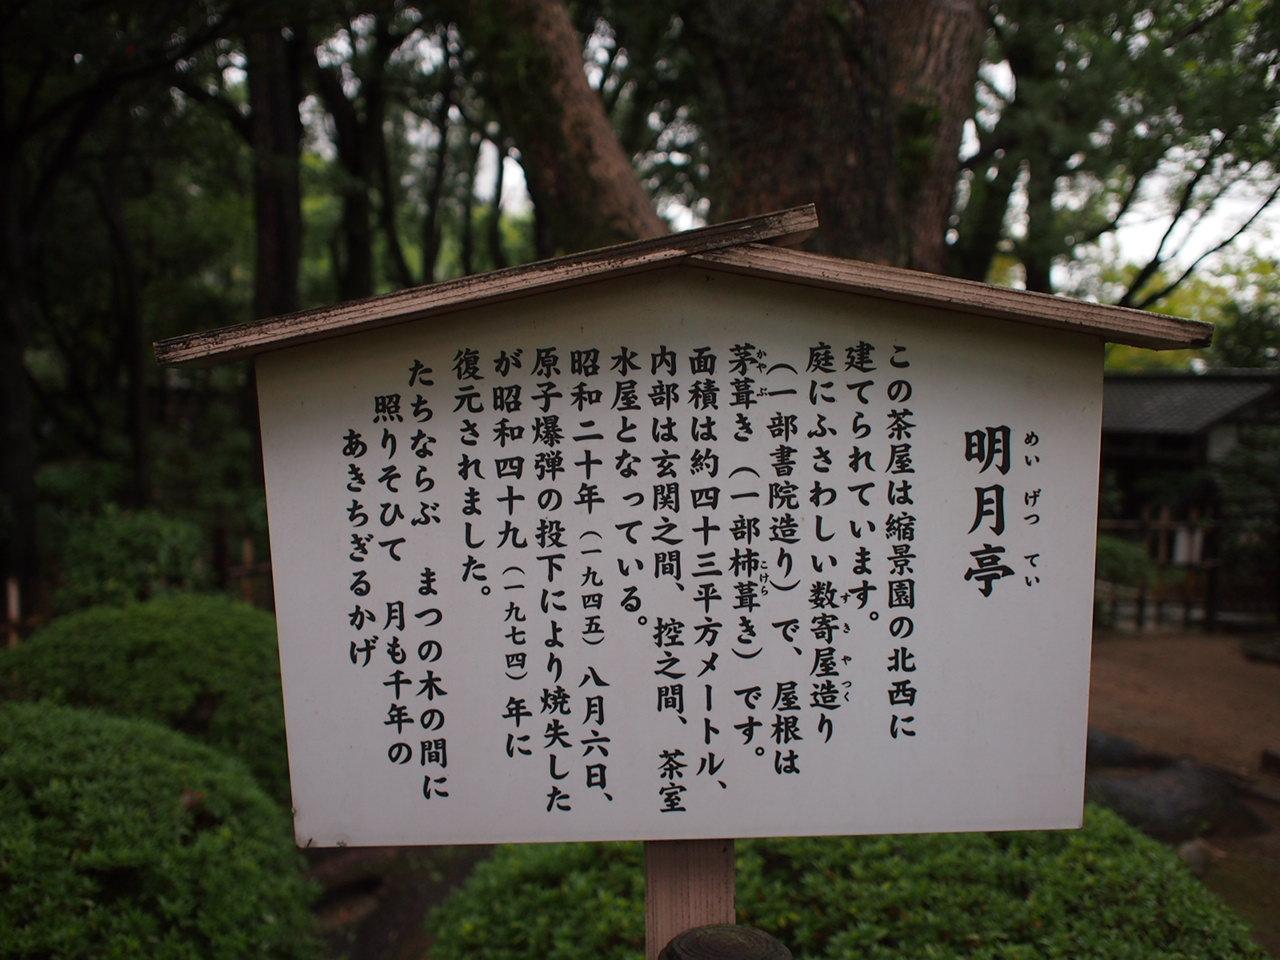 明月亭
めい げつ てい
この茶屋は縮景園の北西に
建てられています。
庭にふさわしい数寄屋造り
すきやつく
(一部書院造り)で、屋根は
茅葺き(一部柿葺き)です。
かやぶ
こけら
面積は約四十三平方メートル、
内部は玄関之間、控之間、茶室
水屋となっている。
昭和二十年(一九四五)八月六日、
原子爆弾の投下により焼失した
が昭和四十九(一九七四)年に
復元されました。
たちならぶ まつの木の間に
照りそひて 月も千年の
あきちぎるかげ